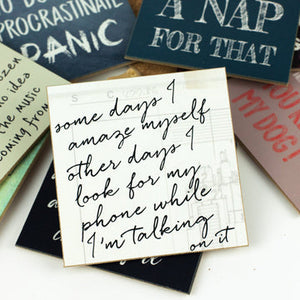 PROCRASTINATE
PANIC
A NAP
FOR THAT
no idea
the music
coming from
MY DOG!
S C
some days I
amaze myself
other days I
look for my
phone while
I'm talking
on it